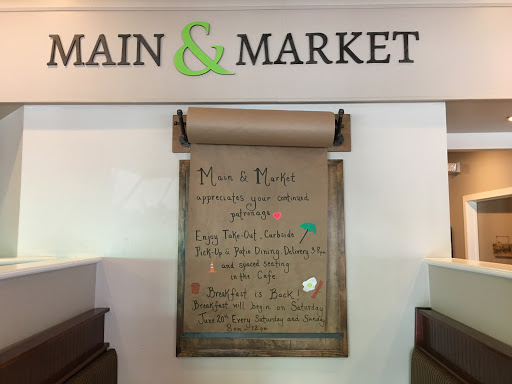 MAIN & MARKET
Main & Market
appreciates your continued
patronage
Enjoy Take-Out, Curbside
Pick-Up & Patio Dining, Delivery 3-8pm
and spaced seating
in the Cafe.
Breakfast is Back!
Breakfast will begin on Saturday
June 20th Every Saturday and Sunday
8am-12pm